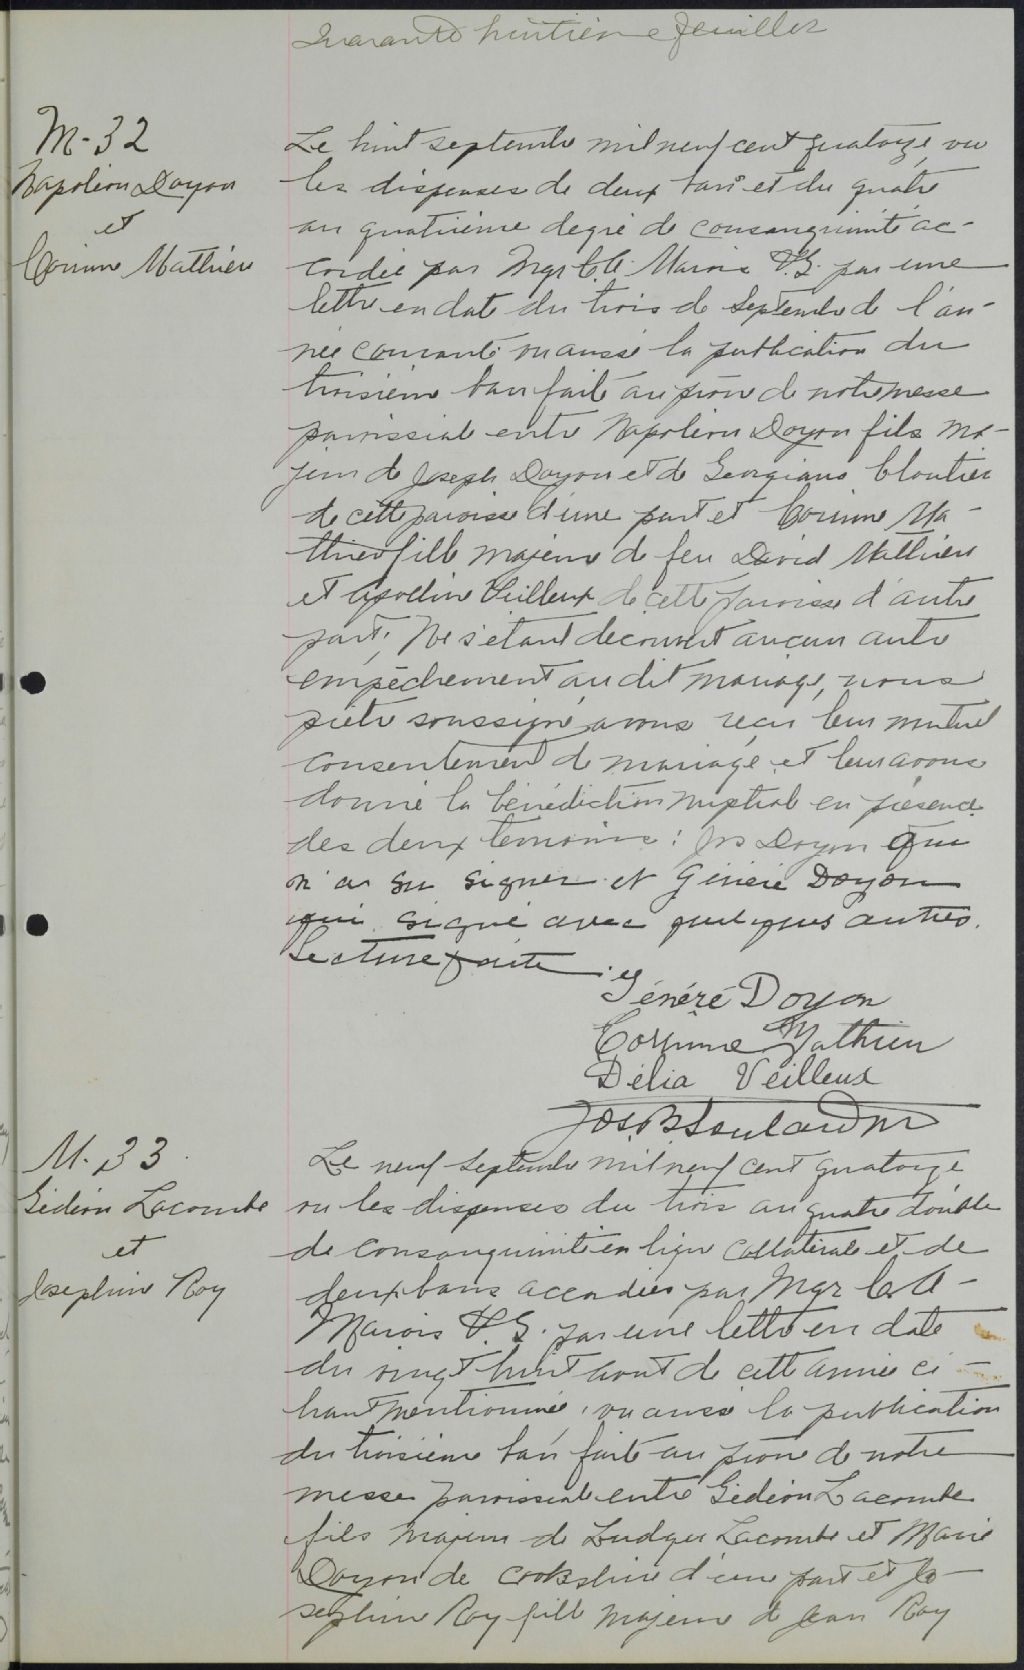 Quarante huitième feuillet
M-32
Napoléon Doyon
et
Corinne Mathieu
Le huit septembre mil neuf cent quatorze, vu
les dispenses de deux bans et du quatre
au quatrième degré de consanguinité ac-
cordée par Mgr C. A. Marois V.G. par une
lettre en date du trois de Septembre de l'an-
née courante vu aussi la publication du
troisième ban faite au prône de notre messe
paroissiale entre Napoléon Doyon fils ma-
jeur de Joseph Doyon et de Georgiana Cloutier
de cette paroisse d'une part et Corinne Ma-
thieu fille majeure de feu David Mathieu
et Apolline Veilleux de cette paroisse d'autre
part; Ne s'étant découvert aucun autre
empêchement au dit mariage, nous
prêtre soussigné avons reçu leur mutuel
consentement de mariage et leur avons
donné la bénédiction nuptiale en présence
des deux témoins: Jos Doyon qui
n'a su signer et Généré Doyon
qui signé avec quelques autres.
Lecture faite
Généré Doyon
Corinne Mathieu
Délia Veilleux
M. 33
Gédéon Lacombe
et
Joséphine Roy
Le neuf Septembre mil neuf cent quatorze
vu les dispenses du trois au quatre double
de consanguinité en ligne collatérale et de
deux bans accordées par Mgr C. A
Marois V.G. par une lettre en date
du vingt huit aout de cette année ci-
haut mentionnée, vu aussi la publication
du troisième ban faite au prône de notre
messe paroissiale entre Gédéon Lacombe
fils majeur de Ludger Lacombe et Marie
Doyon de Cookshire d'une part et Jo-
séphine Roy fille majeure de Jean Roy